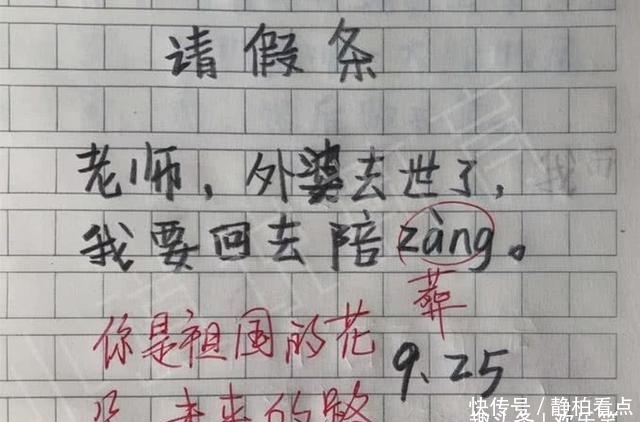 请假条
老师，外婆去世了，
我要回去陪zàng。
葬
你是祖国的花
9.25
未来的路
快传号/静柏看点